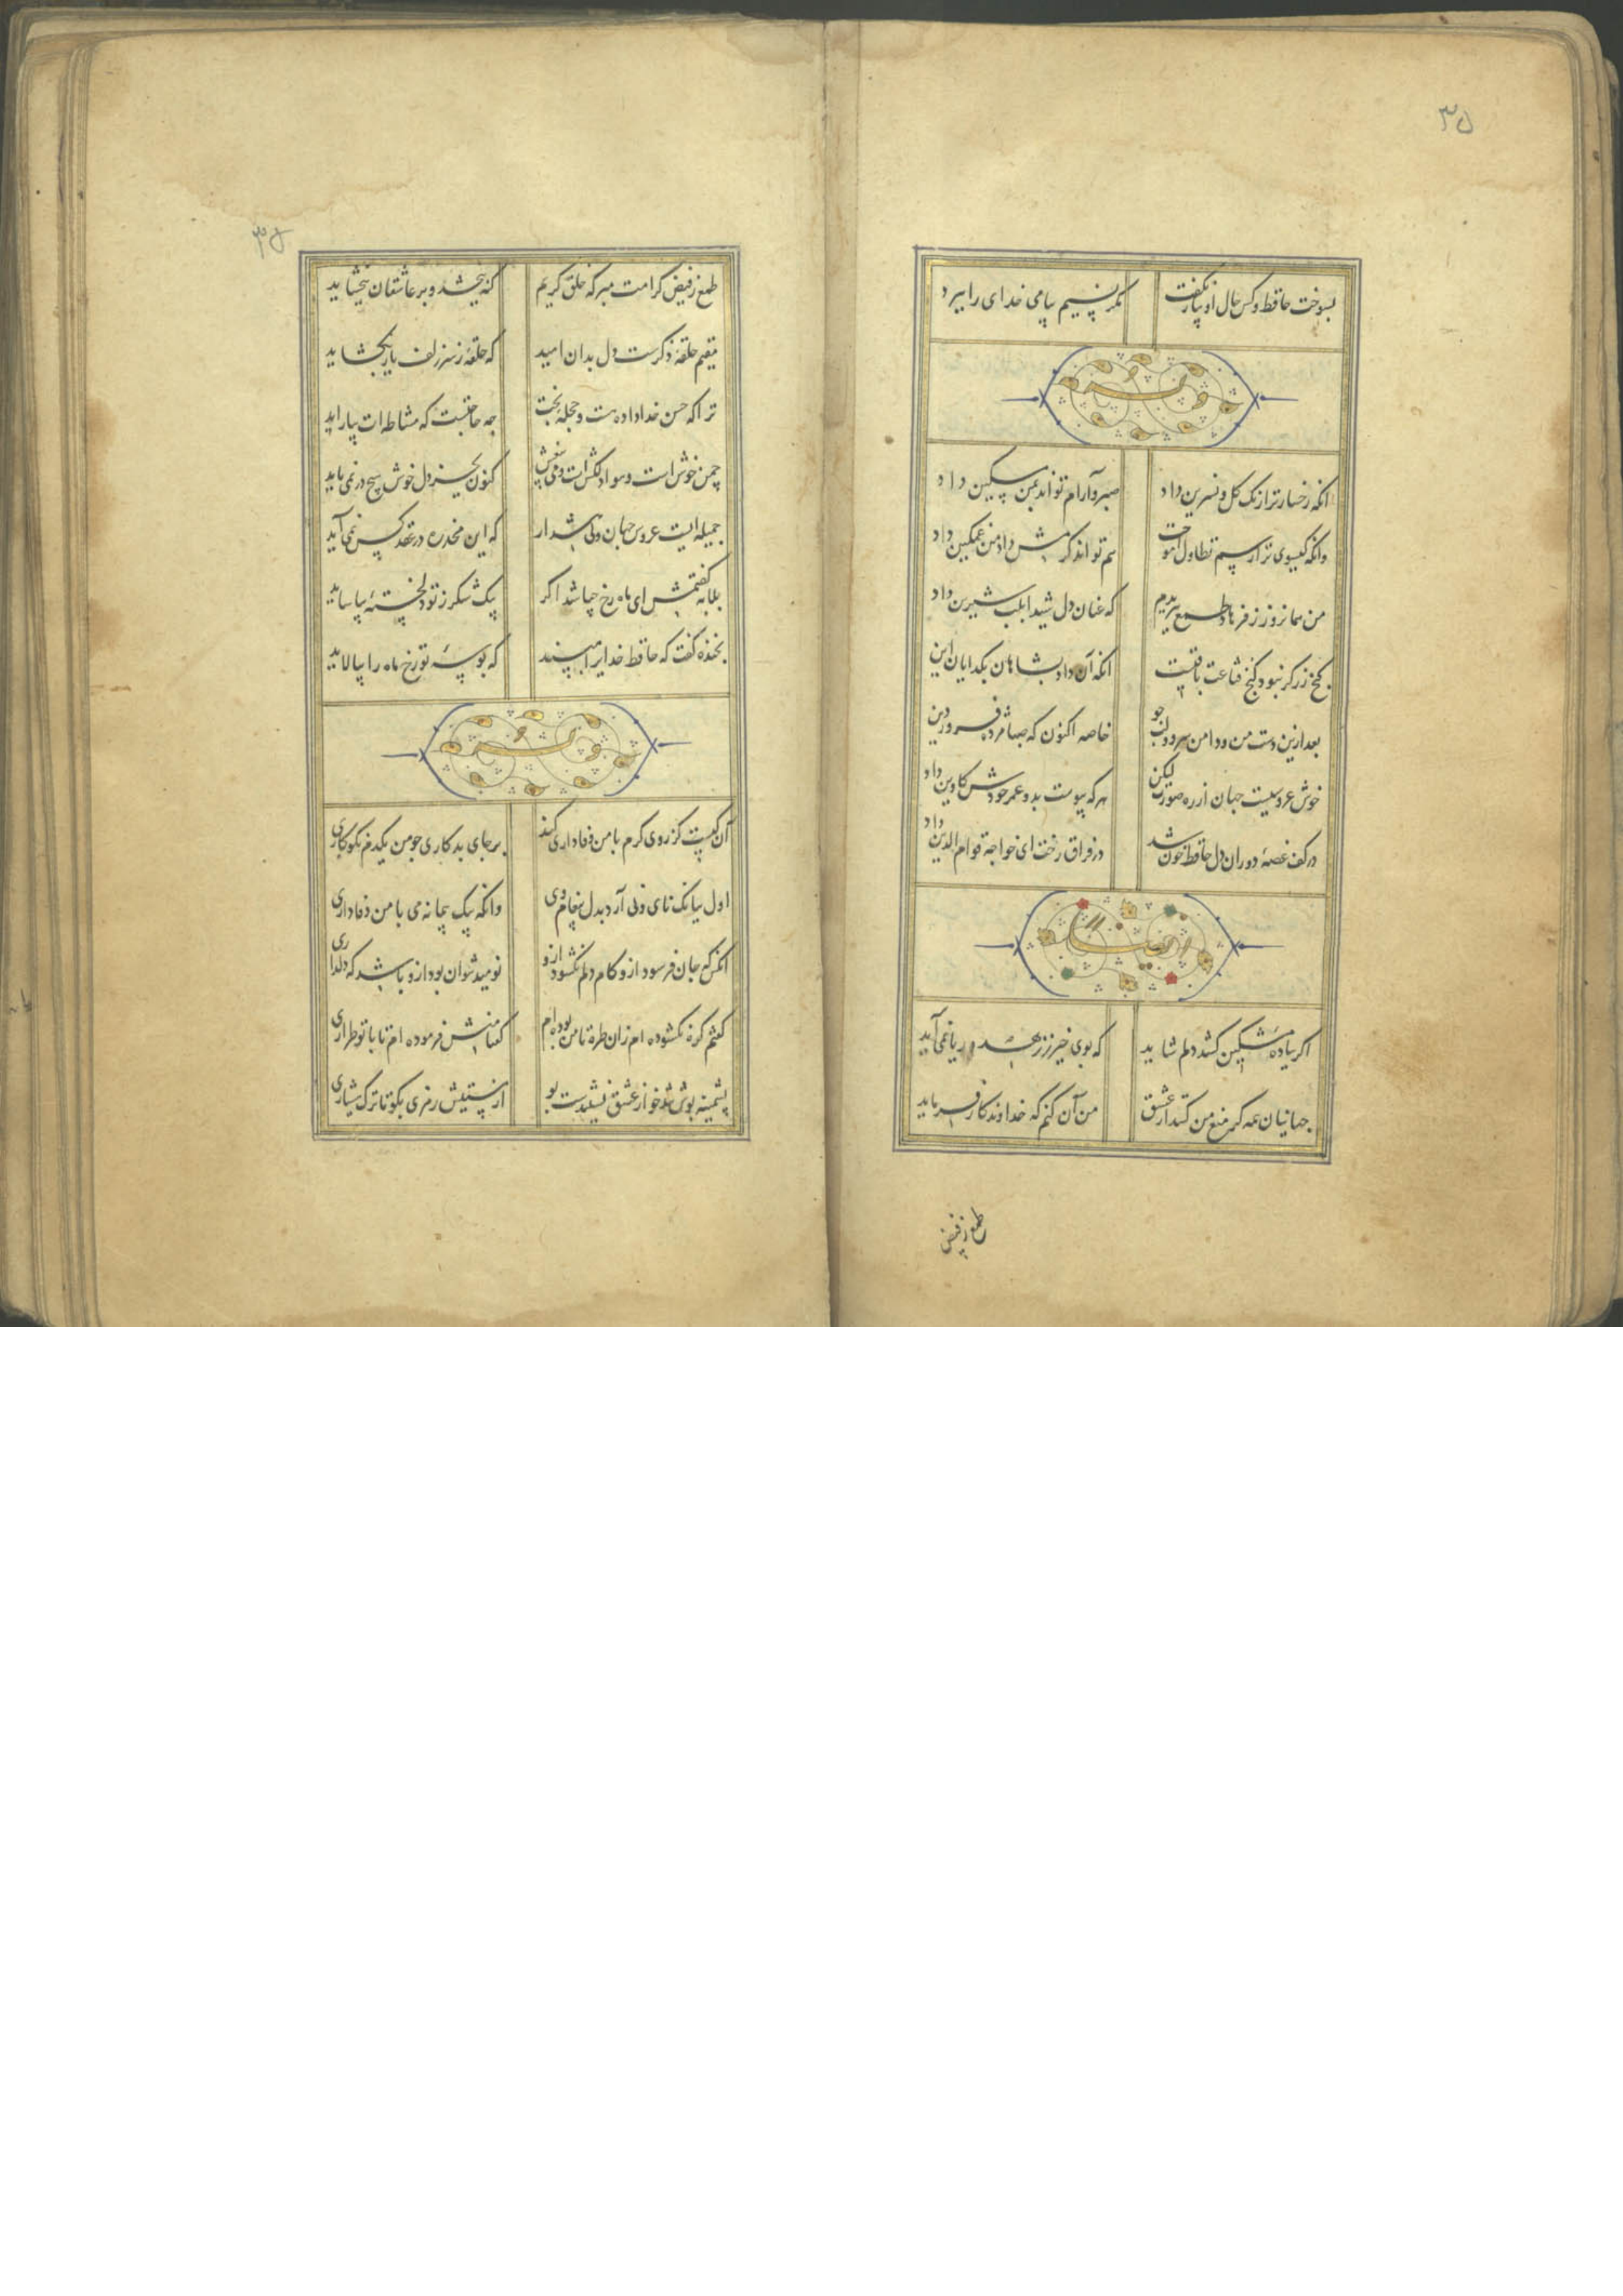 ۳۵
بسوخت حافظ و کس حال او بیار نکفت
مکر نسیم پیامی خدای را ببرد
وله
انکه رخسار ترا رنک کل و نسرین داد
صبر و آرام تواند بمن مسکین داد
وانکه کیسوی ترا رسم تطاول آموخت
هم تواند کرمش داد من غمکین داد
من همانروز ز فرهاد طمع ببریدم
که عنان دل شیدا بلب شیرین داد
کنج زر کر نبود کنج قناعت باقیست
انکه آن داد بشاهان بکدایان این
بعد ازین دست من و دامن سرو و لب جو
خاصه اکنون که صبا مژده فروردین
خوش عروسیست جهان از ره صورت لیکن
هر که پیوست بدو عمر خودش کاوین داد
در کف غصهٔ دوران دل حافظ خون شد
در فراق رخت ای خواجه قوام الدین داد
ایضا
اکر بباده مشکین کشد دلم شاید
که بوی خیر ز زهد و ریا نمی آید
جهانیان همه کر منع من کنند از عشق
من آن کنم که خداوندکار فرماید
طمع ز فیض
۳۵
طمع ز فیض کرامت مبر که خلق کریم
کنه ببخشد و بر عاشقان ببخشاید
مقیم حلقهٔ ذکرست دل بدان امید
که حلقهٔ ز سر زلف یار بکشاید
ترا که حسن خداداده هست و حجلهٔ بخت
چه حاجتست که مشاطه ات بیاراید
چمن خوش است و هوا دلکش است و می بیغش
کنون بجز دل خوش هیچ در نمی باید
جمیله ایست عروس جهان ولی هشدار
که این مخدره در عقد کس نمی آید
بلابه کفتمش ای ماه رخ چه باشد اکر
بیک شکر ز تو دلخستهٔ بیاساید
بخنده کفت که حافظ خدایرا مپسند
که بوسهٔ تو رخ ماه را بیالاید
وله
آن کیست کز روی کرم با من وفاداری کند
بر جای بدکاری چو من یکدم نکوکاری
اول ببانک نای و نی آرد بدل پیغام وی
وانکه بیک پیمانه می با من وفاداری
انکس که جان فرسود ازو کام دلم نکشود ازو
نومید نتوان بود ازو باشد که دلداری
کفتم کره نکشوده ام زان طره تا من بوده ام
کفتا منش فرموده ام تا با تو طراری
پشمینه پوش تند خو از عشق نشنیدست بو
از مستیش رمزی بکو تا ترک هشیاری